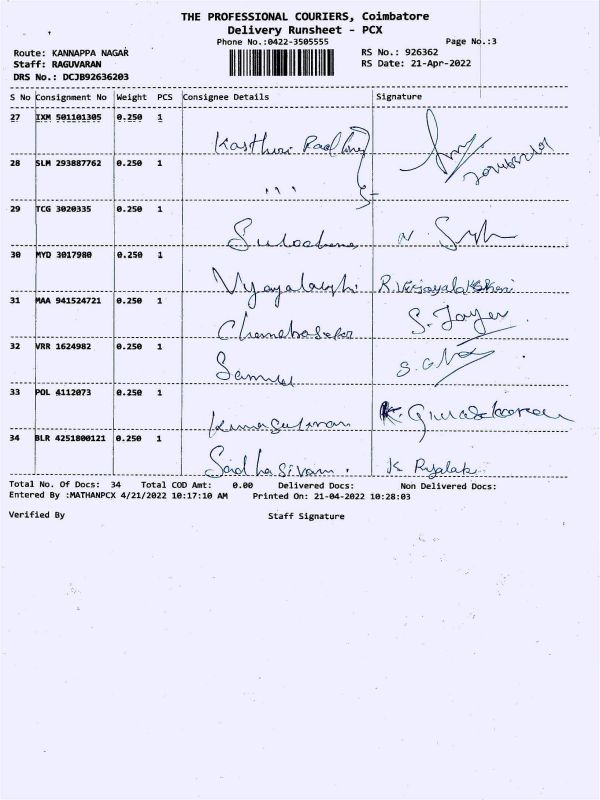 THE PROFESSIONAL COURIERS, Coimbatore
Delivery Runsheet - PCX
Phone No.:0422-3505555 Page No.:3
Route: KANNAPPA NAGAR RS No.: 926362
Staff: RAGUVARAN RS Date: 21-Apr-2022
DRS No.: DCJB92636203
S No Consignment No Weight PCS Consignee Details Signature
27 IXM 501101305 0.250 1
Kasthuri
28 SLM 293887762 0.250 1
29 TCG 3020335 0.250 1
Sulochana N.
30 MYD 3017980 0.250 1
Vijayalakshmi R. Vijayalakshmi
31 MAA 941524721 0.250 1
Chandrasekar S.
32 VRR 1624982 0.250 1
Samuel S.
33 POL 4112073 0.250 1
K.
34 BLR 4251800121 0.250 1
Sadhasivam. K
Total No. Of Docs: 34 Total COD Amt: 0.00 Delivered Docs: Non Delivered Docs:
Entered By :MATHANPCX 4/21/2022 10:17:10 AM Printed On: 21-04-2022 10:28:03
Verified By Staff Signature